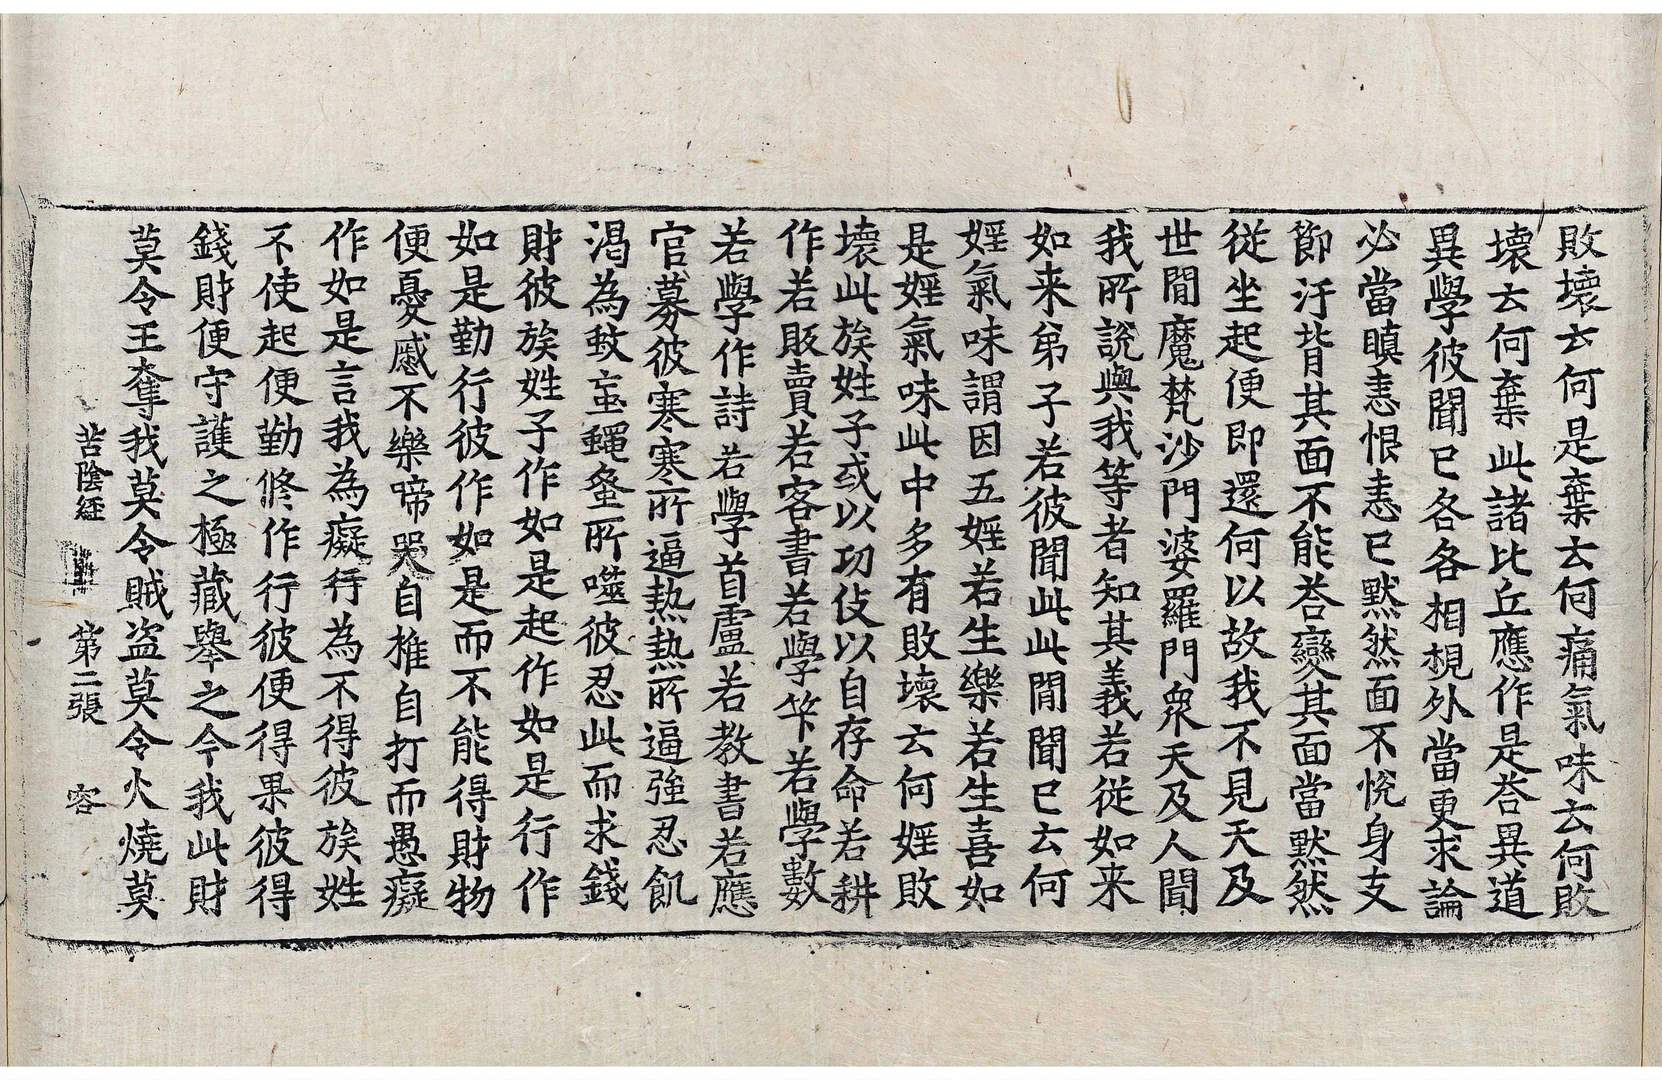 敗壞云何是棄云何痛氣味云何敗
壞云何棄此諸比丘應作是荅異道
異學彼聞已各各相規外當更求論
必當瞋恚恨恚已默然面不悅身支
節汙背其面不能荅變其面當默然
從坐起便即還何以故我不見天及
世間魔梵沙門婆羅門衆天及人聞
我所說與我等者知其義若從如来
如来弟子若彼聞此此間聞已云何
婬氣味謂因五婬若生樂若生喜如
是婬氣味此中多有敗壞云何婬敗
壞此族姓子或以功伎以自存命若耕
作若販賣若客書若學竿若學數
若學作詩若學首盧若教書若應
官募彼寒寒所逼熱熱所逼強忍飢
渴為蚊䖟蠅蚤所噬彼忍此而求錢
財彼族姓子作如是起作如是行作
如是勤行彼作如是而不能得財物
便憂慼不樂啼哭自椎自打而愚癡
作如是言我為癡行為不得彼族姓
不使起便勤修作行彼便得果彼得
錢財便守護之極藏舉之今我此財
莫令王奪我莫令賊盗莫令火燒莫
苦陰經 第二張 容